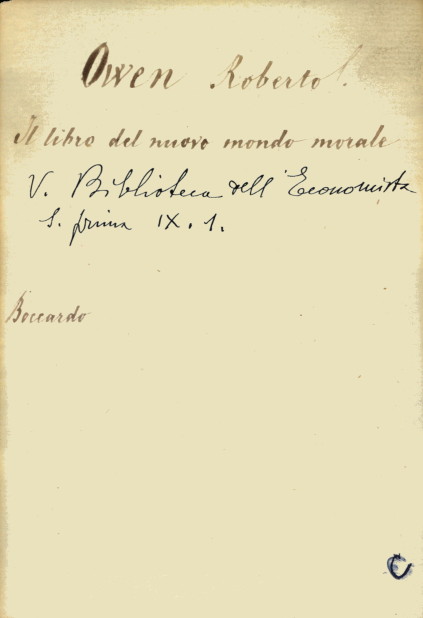 Owen Roberto
Il libro del nuovo mondo morale
V. Biblioteca dell'Economista
S. prima IX. 1.
Boccardo